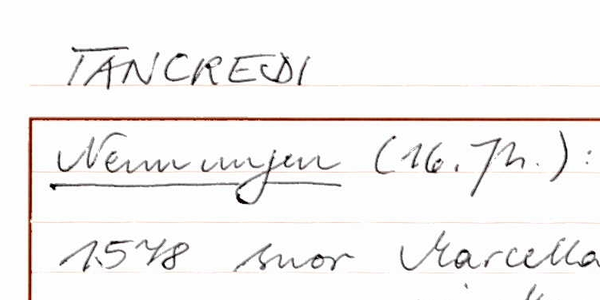 TANCREDI
Nennungen (16. Jh.):
1578 suor Marcella